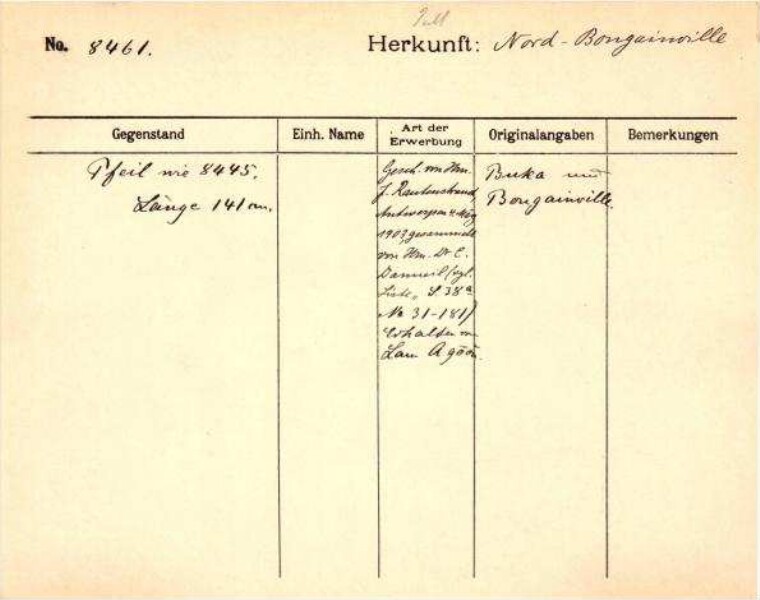 No. 8461.
Herkunft: Nord-Bougainville
Gegenstand
Einh. Name
Art der Erwerbung
Originalangaben
Bemerkungen
Pfeil wie 8445.
Länge 141 cm.
Gesch. von Hrn.
J. Rautenstrauch,
Antwerpen 4. März
1903, gesammelt
von Hrn. Dr. C.
Danneil (vgl.
Liste, S. 38a
No 31-181)
Erhalten von
Lau
Buka und
Bougainville.